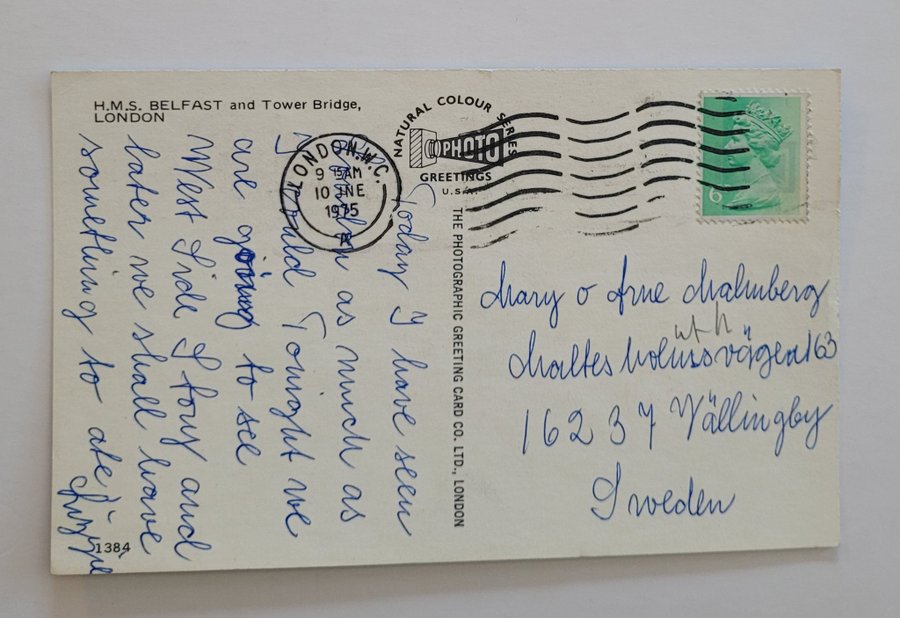 H.M.S. BELFAST and Tower Bridge,
LONDON
Today I have seen
London as much as
I could Tonight we
are going to see
West Side Story and
later we shall have
something to ate!
1384
LONDON.W.C.
9 15AM
10 JNE
1975
A
NATURAL COLOUR SERIES
PHOTO
GREETINGS
U.S.A.
THE PHOTOGRAPHIC GREETING CARD CO. LTD., LONDON
Mary o Arne Malmberg
Maltesholmsvägen 163
162 37 Vällingby
Sweden